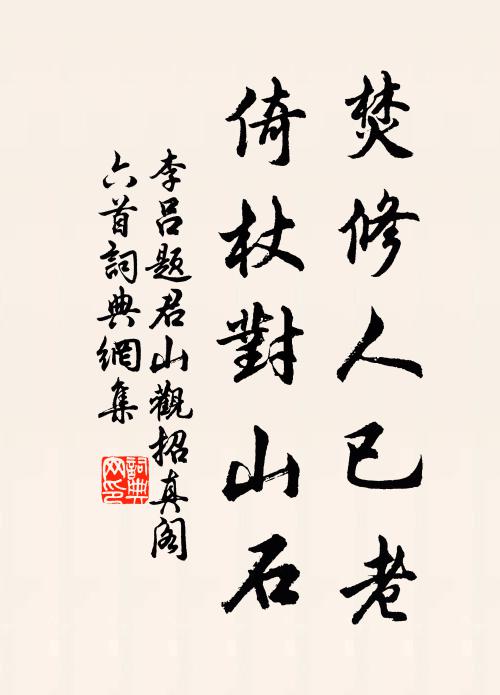 焚修人已老
倚杖對山石
李呂題君山觀招真閣
六首詞典網集
詞典
网印